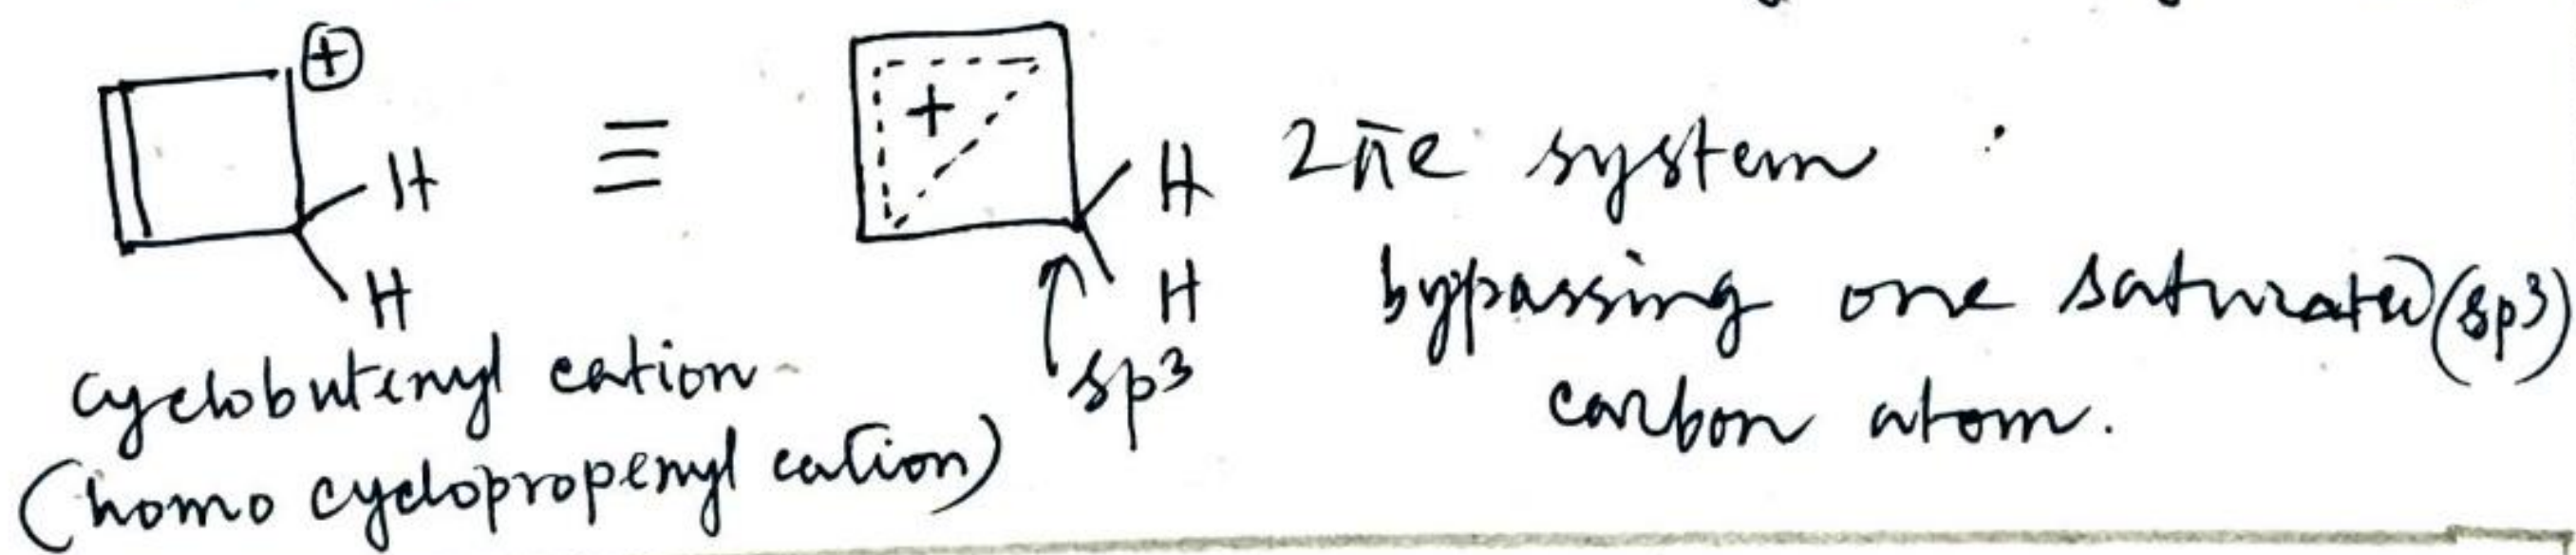 ⊕
H
H
≡
+
H
H
sp³
2πe system
bypassing one saturated (sp³)
carbon atom.
cyclobutenyl cation
(homo cyclopropenyl cation)